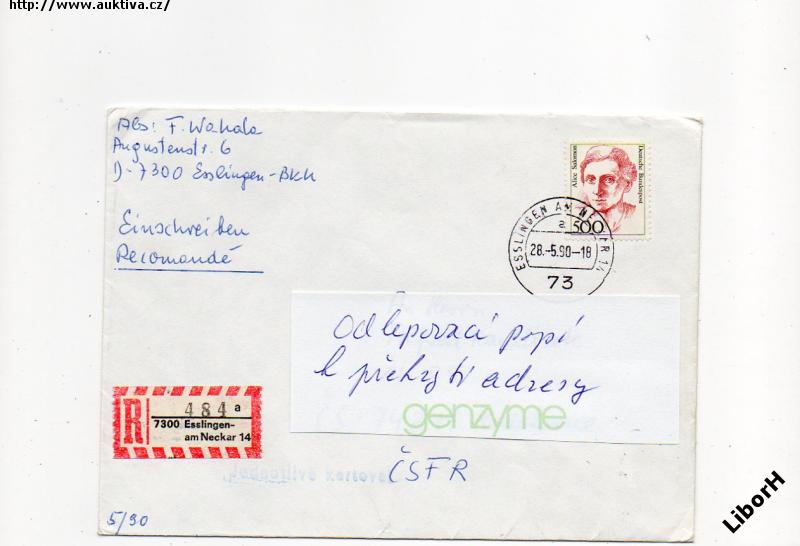 http://www.auktiva.cz/
Abs: F. Wahala
Augustenstr. 6
D-7300 Esslingen-Bkh
Einschreiben
Recomandé
Alice Salomon
Deutsche Bundespost
500
ESSLINGEN AM NECKAR 14
a
28.-5.90-18
73
Odlepovací papí
k překrytí adresy
genzyme
ČSFR
R
484 a
7300 Esslingen-
am Neckar 14
„Jednotlivě kartova
5/90
LiborH